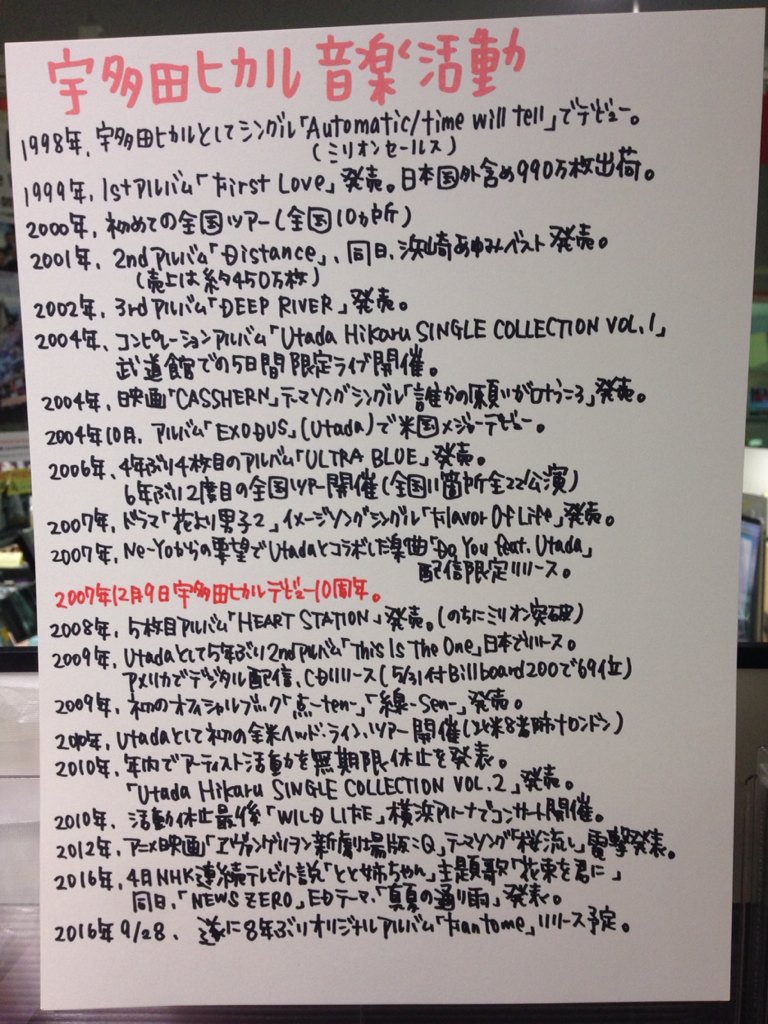 宇多田ヒカル 音楽活動
1998年、宇多田ヒカルとしてシングル「Automatic/time will tell」でデビュー。
(ミリオンセールス)
1999年、1stアルバム「First Love」発売。日本国外含め990万枚出荷。
2000年、初めての全国ツアー(全国10ヵ所)
2001年、2ndアルバム「Distance」、同日、浜崎あゆみベスト発売。
(売上は約450万枚)
2002年、3rdアルバム「DEEP RIVER」発売。
2004年、コンピレーションアルバム「Utada Hikaru SINGLE COLLECTION VOL.1」
武道館での5日間限定ライブ開催。
2004年、映画「CASSHERN」テーマソングシングル「誰かの願いが叶うころ」発売。
2004年10月、アルバム「EXODUS」(Utada)で米国メジャーデビュー。
2006年、4年ぶり4枚目のアルバム「ULTRA BLUE」発売。
6年ぶり2度目の全国ツアー開催(全国11箇所全22公演)
2007年、ドラマ「花より男子2」イメージソングシングル「Flavor Of Life」発売。
2007年、Ne-Yoからの要望でUtadaとコラボした楽曲「Do You feat. Utada」
配信限定リリース。
2007年12月9日宇多田ヒカルデビュー10周年。
2008年、5枚目アルバム「HEART STATION」発売。(のちにミリオン突破)
2009年、Utadaとして5年ぶり2ndアルバム「This Is The One」日本でリリース。
アメリカでデジタル配信、CDリリース(5/31付Billboard200で69位)
2009年、初のオフィシャルブック「点-ten-」「線-sen-」発売。
2010年、Utadaとして初の全米ヘッド・ライン・ツアー開催(北米8都市+ロンドン)
2010年、年内でアーティスト活動を無期限休止を発表。
「Utada Hikaru SINGLE COLLECTION VOL.2」発売。
2010年、活動休止最後「WILD LIFE」横浜アリーナでコンサート開催。
2012年、アニメ映画「ヱヴァンゲリヲン新劇場版:Q」テーマソング「桜流し」電撃発表。
2016年、4月NHK連続テレビ小説「とと姉ちゃん」主題歌「花束を君に」
同日、「NEWS ZERO」EDテーマ、「真夏の通り雨」発表。
2016年9/28、遂に8年ぶりオリジナルアルバム「Fantome」リリース予定。